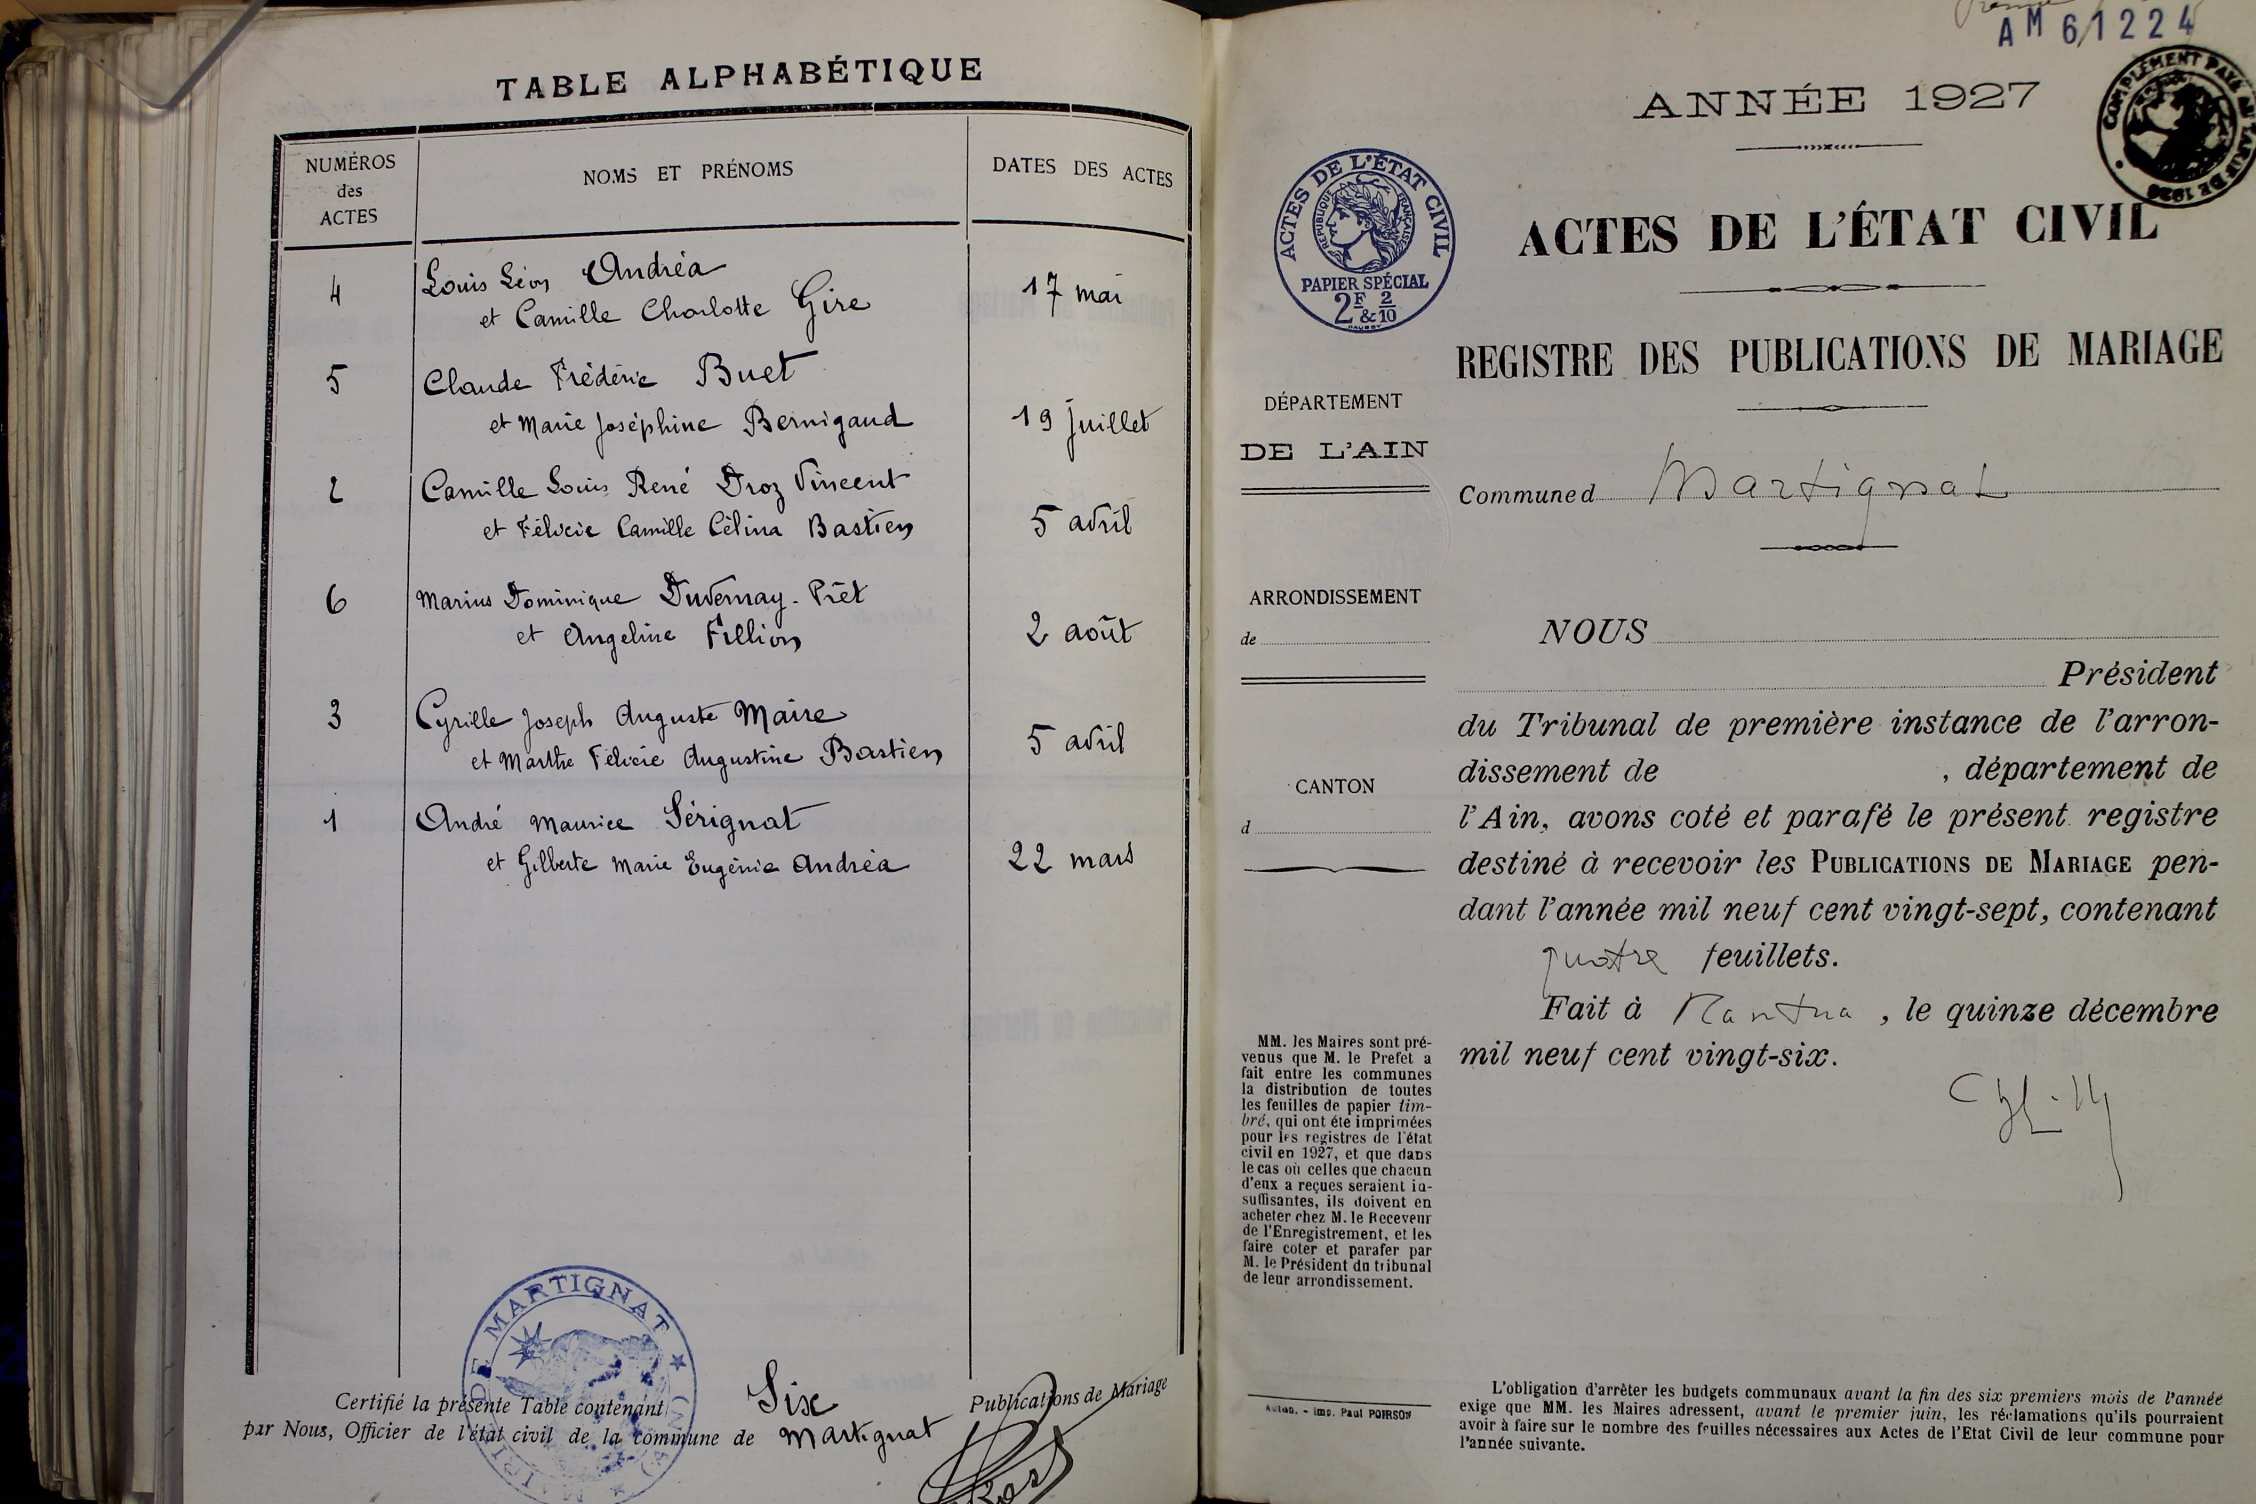 TABLE ALPHABÉTIQUE
NUMÉROS
des
ACTES
NOMS ET PRÉNOMS
DATES DES ACTES
4 Louis Léon Andréa
et Camille Charlotte Gire 17 mai
5 Claude Frédéric Buet
et Marie Joséphine Bernigaud 19 juillet
2 Camille Louis René Droz Vincent
et Félicie Camille Célina Bastien 5 avril
6 Marius Dominique Duvernay-Prêt
et Angeline Fillion 2 août
3 Cyrille Joseph Auguste Maire
et Marthe Félicie Augustine Bastien 5 avril
1 André Maurice Sérignat
et Gilberte Marie Eugénie Andréa 22 mars
Certifié la présente Table contenant Six Publications de Mariage
par Nous, Officier de l'état civil de la commune de Martignat
MAIRIE DE MARTIGNAT ★ (AIN) ★
AM 61224
COMPLÉMENT PAYÉ AU TARIF DE 1926
ANNÉE 1927
ACTES DE L'ÉTAT CIVIL
RÉPUBLIQUE FRANÇAISE
PAPIER SPÉCIAL
2F & 2/10
ACTES DE L'ÉTAT CIVIL
REGISTRE DES PUBLICATIONS DE MARIAGE
DÉPARTEMENT
DE L'AIN
Commune d Martignat
ARRONDISSEMENT
de
CANTON
d
NOUS
Président
du Tribunal de première instance de l'arron-
dissement de , département de
l'Ain, avons coté et parafé le présent registre
destiné à recevoir les PUBLICATIONS DE MARIAGE pen-
dant l'année mil neuf cent vingt-sept, contenant
quatre feuillets.
Fait à Nantua, le quinze décembre
mil neuf cent vingt-six.
MM. les Maires sont pré-
venus que M. le Prefet a
fait entre les communes
la distribution de toutes
les feuilles de papier tim-
bré, qui ont été imprimées
pour les registres de l'état
civil en 1927, et que dans
le cas où celles que chacun
d'eux a reçues seraient in-
suffisantes, ils doivent en
acheter chez M. le Receveur
de l'Enregistrement, et les
faire coter et parafer par
M. le Président du tribunal
de leur arrondissement.
- Imp. Paul POIRSON
L'obligation d'arrêter les budgets communaux avant la fin des six premiers mois de l'année
exige que MM. les Maires adressent, avant le premier juin, les réclamations qu'ils pourraient
avoir à faire sur le nombre des feuilles nécessaires aux Actes de l'Etat Civil de leur commune pour
l'année suivante.